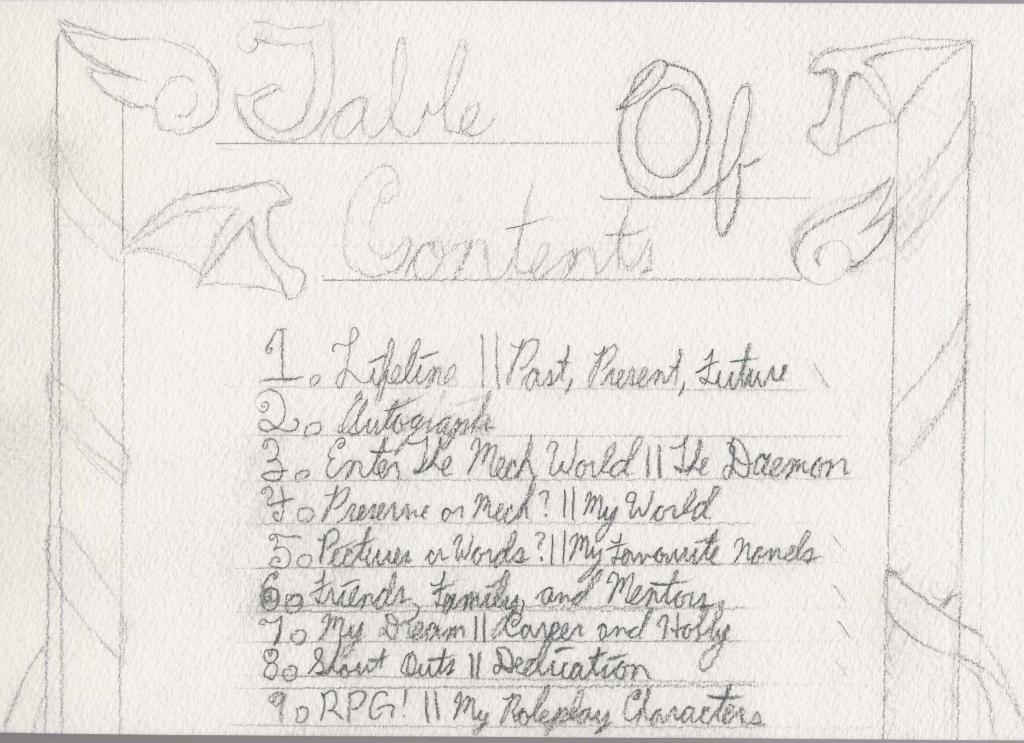 Table Of
Contents
1. Lifeline || Past, Present, Future
2. Autographs
3. Enter The Mech World || The Daemon
4. Preserve or Mech? || My World
5. Pictures or Words? || My Favourite Novels
6. Friends, Family, and Mentors
7. My Dream || Career and Hobby
8. Shout Outs || Dedication
9. RPG! || My Roleplay Characters